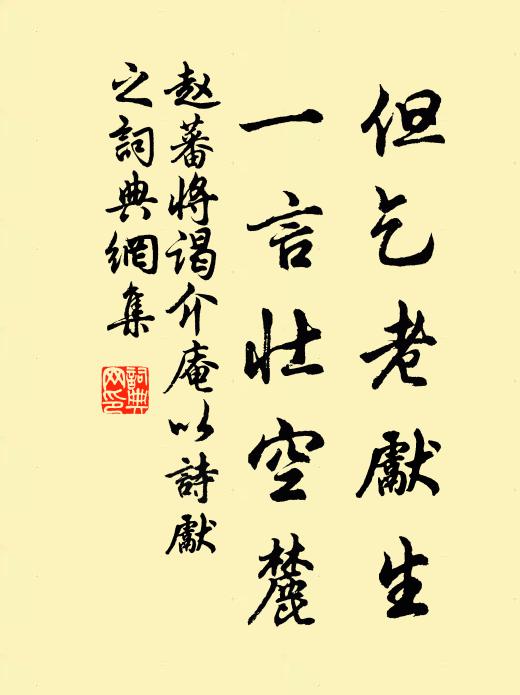 但乞老獻生
一言壯空麓
趙蕃將謁介庵以詩獻
之詞典網集
詞典
网印